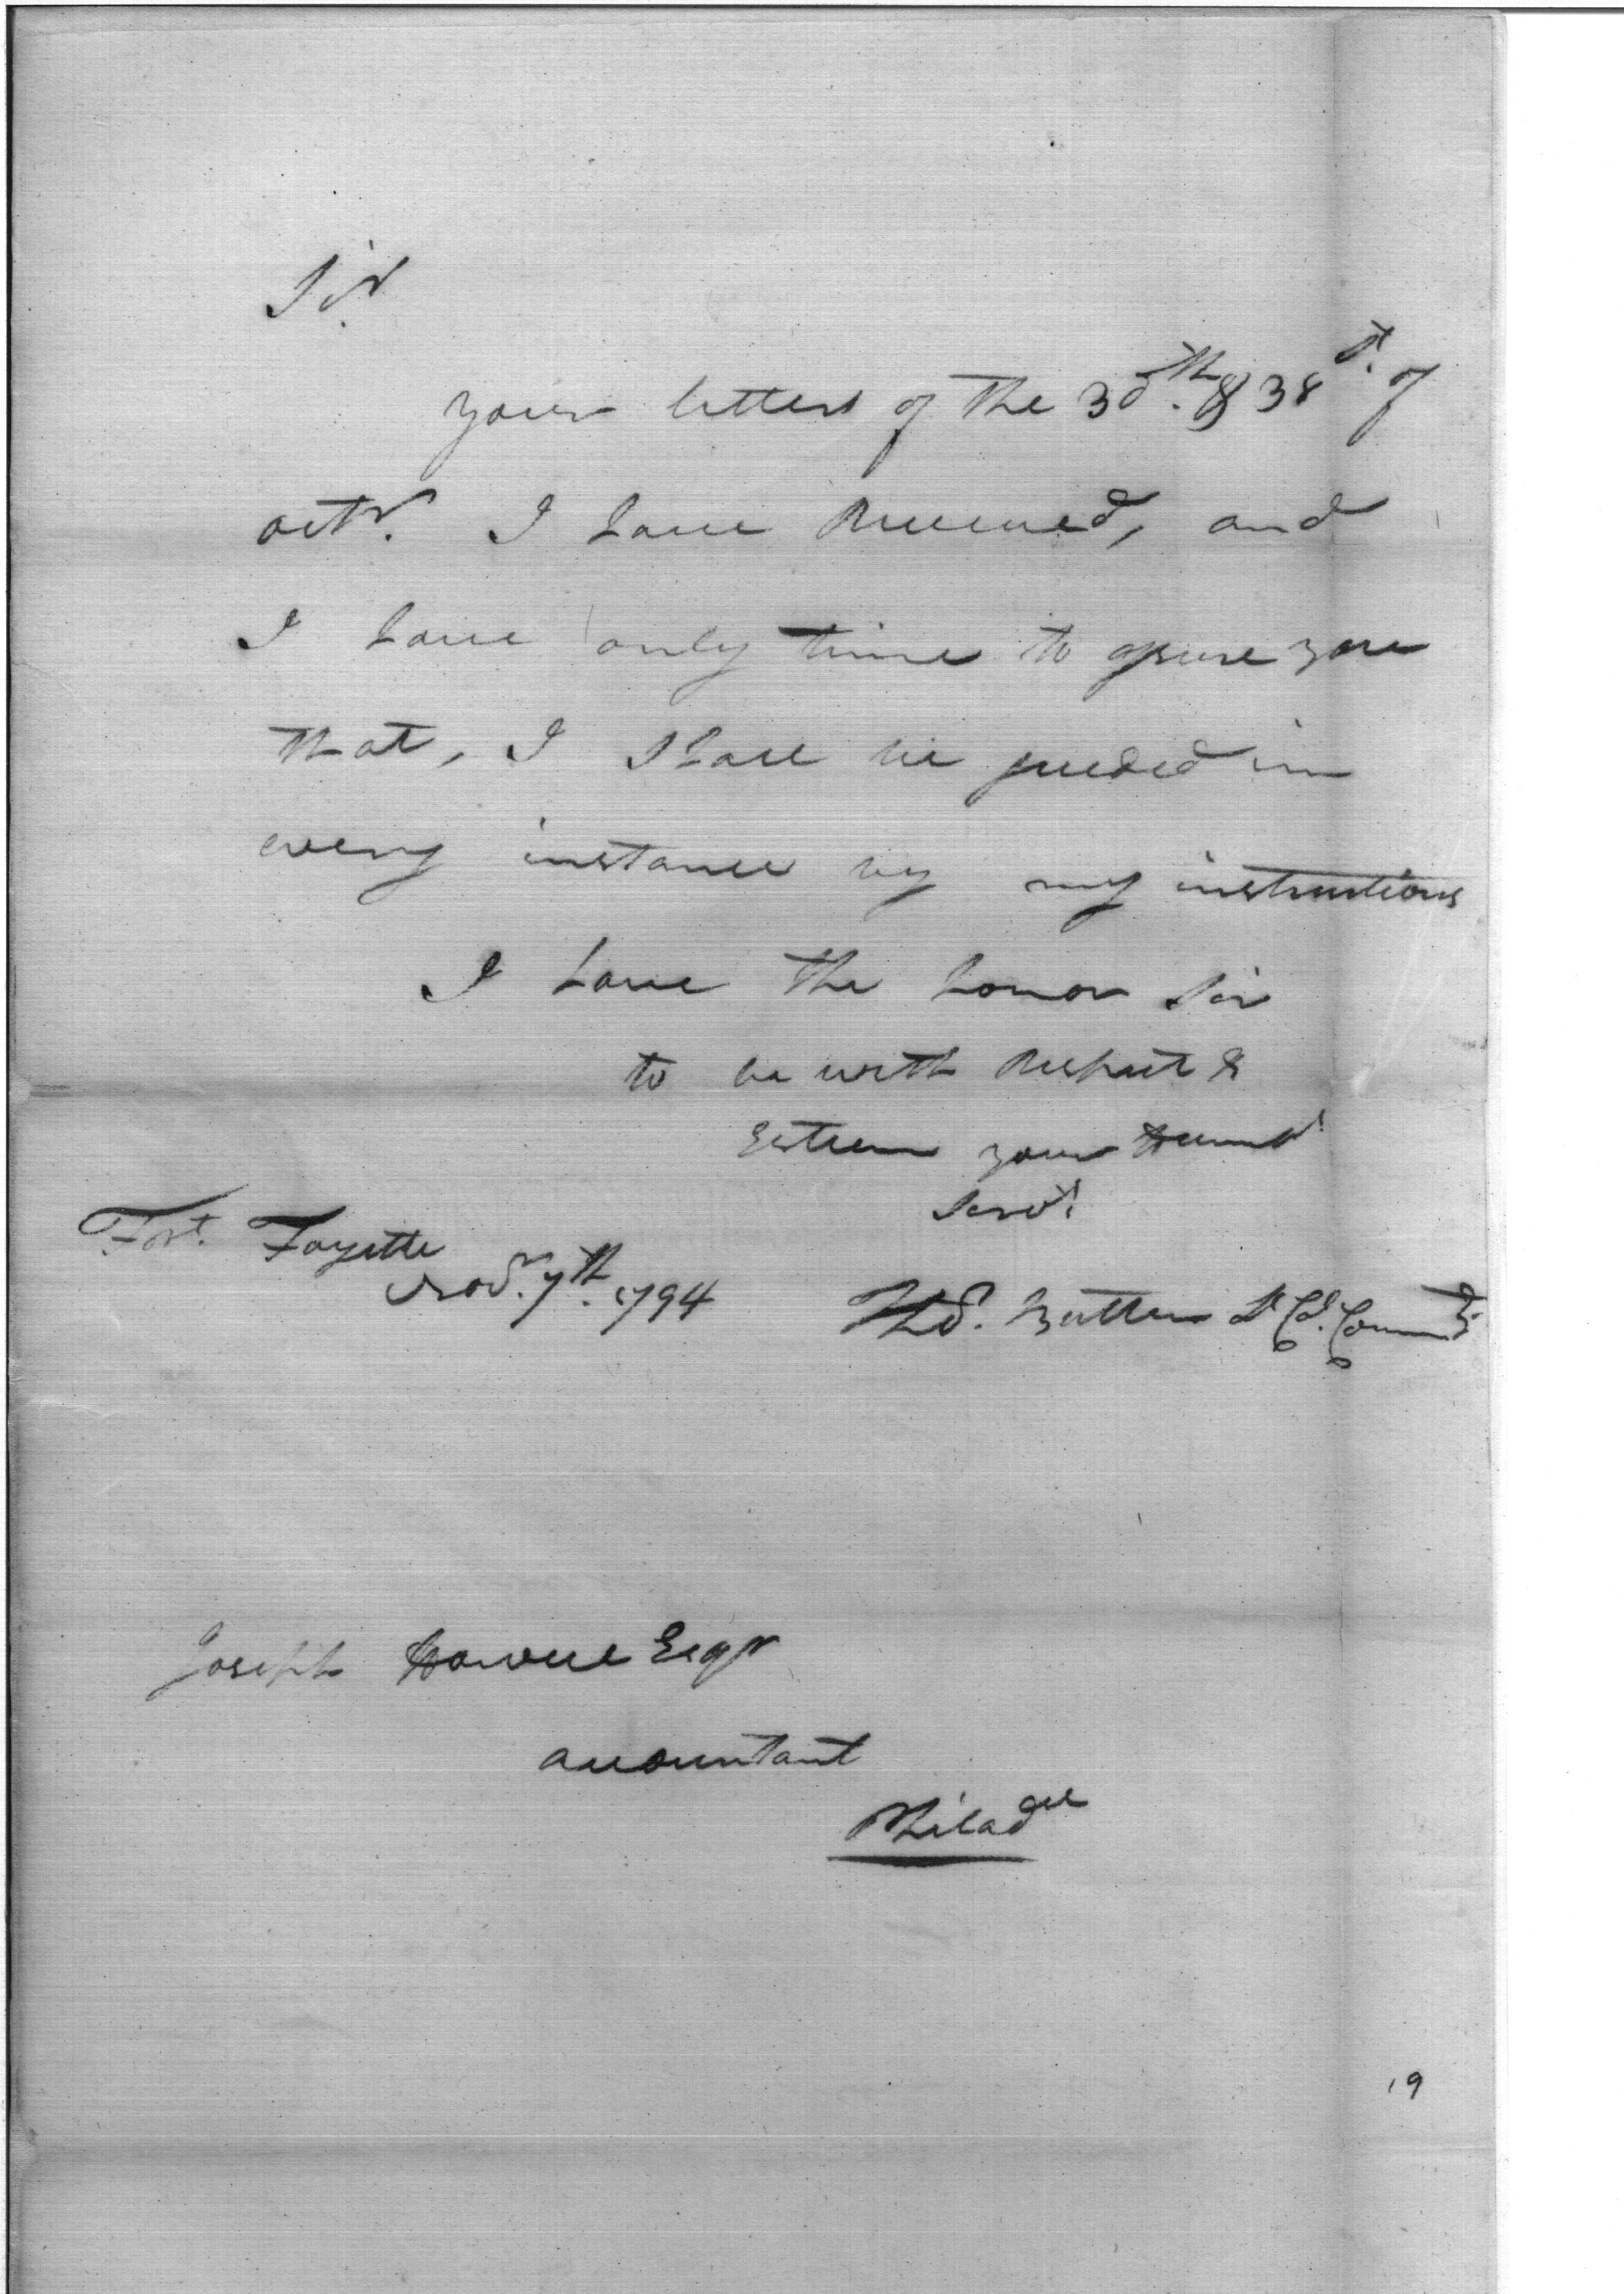 Sir.
your letters of the 30th. & 31st. of
octr. I have Received, and
I have only time to assure you
that, I shall be guided in
every instance by my instructions
I have the honor Sir
to be with Respect &
Esteem your Humbl
Servt.
Fort. Fayette
Novr. 7th. 1794
Thos. Butler Lt Col. Commdt
Joseph Howell Esqr
accountant
Philadel
19